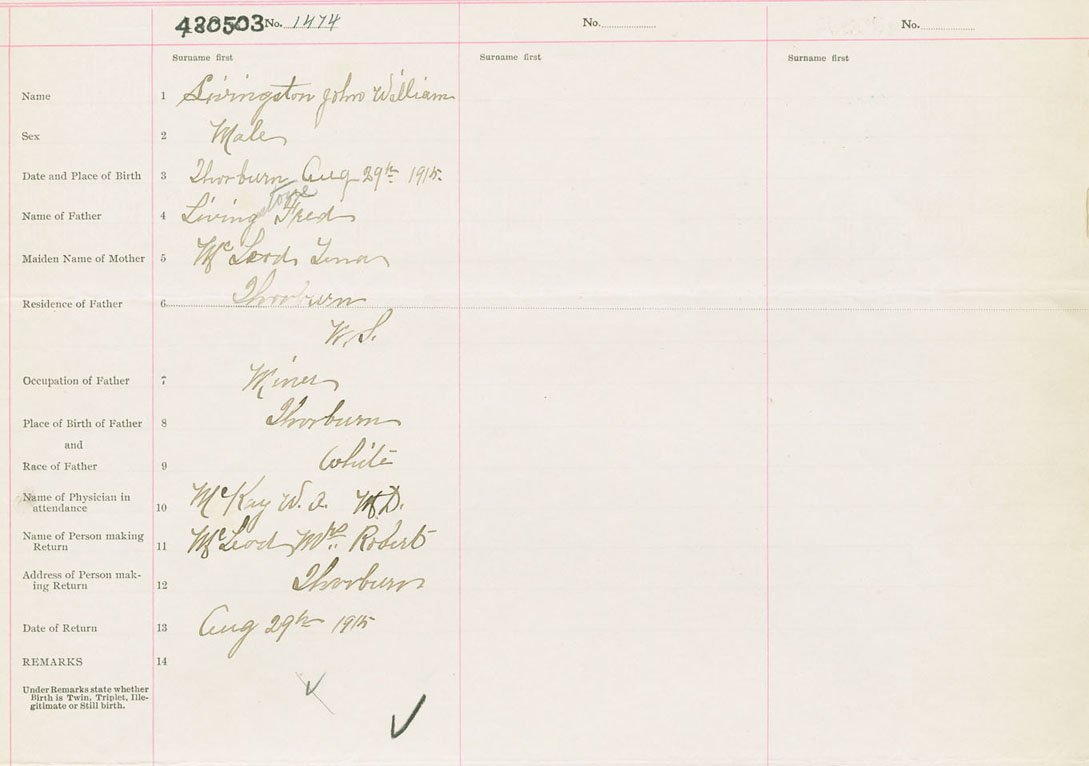 480503 No. 1474 No. No.
Surname first Surname first Surname first
Name 1 Livingston John William
Sex 2 Male
Date and Place of Birth 3 Thorburn Aug 29th 1915.
stone
Name of Father 4 Living Fred
Maiden Name of Mother 5 McLeod Tena
Residence of Father 6 Thorburn
N. S.
Occupation of Father 7 Miner
Place of Birth of Father 8 Thorburn
and
Race of Father 9 White
Name of Physician in
attendance 10 McKay W. A. M.D.
Name of Person making
Return 11 McLeod Mrs. Robert
Address of Person mak-
ing Return 12 Thorburn
Date of Return 13 Aug 29th 1915
REMARKS 14
Under Remarks state whether
Birth is Twin, Triplet, Ille-
gitimate or Still birth.